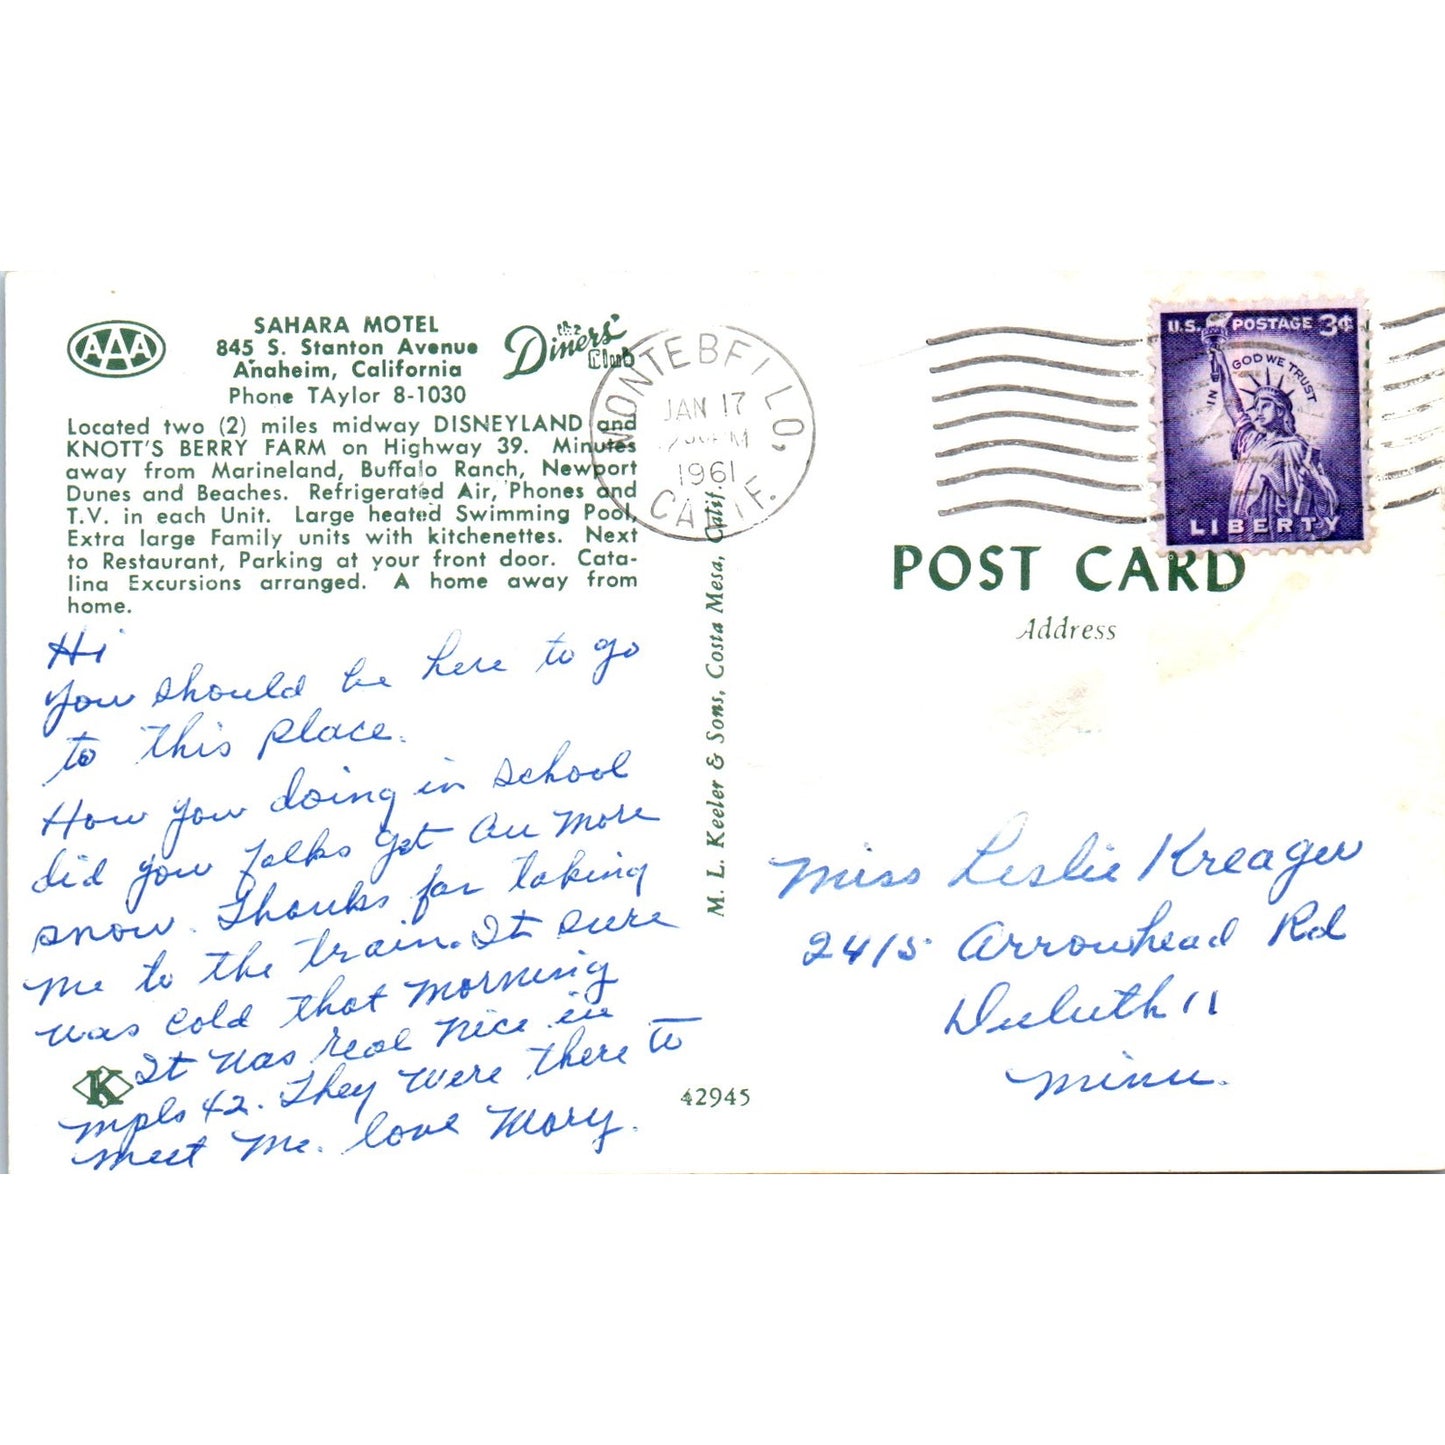 AAA
SAHARA MOTEL
845 S. Stanton Avenue
Anaheim, California
Phone TAylor 8-1030
the
Diners'
Club
Located two (2) miles midway DISNEYLAND and
KNOTT'S BERRY FARM on Highway 39. Minutes
away from Marineland, Buffalo Ranch, Newport
Dunes and Beaches. Refrigerated Air, Phones and
T.V. in each Unit. Large heated Swimming Pool,
Extra large Family units with kitchenettes. Next
to Restaurant, Parking at your front door. Cata-
lina Excursions arranged. A home away from
home.
Hi
You should be here to go
to this place.
How you doing in school
did you folks get any more
snow. Thanks for taking
me to the train. It sure
was cold that morning
It was real nice in
mpls 42. They were there to
meet me. love Mary.
K
42945
M. L. Keeler & Sons, Costa Mesa, Calif.
MONTEBELLO, CALIF.
JAN 17
PM
1961
U.S. POSTAGE 3¢
IN GOD WE TRUST
LIBERTY
POST CARD
Address
Miss Leslie Kreager
2415 Arrowhead Rd
Duluth 11
Minn.